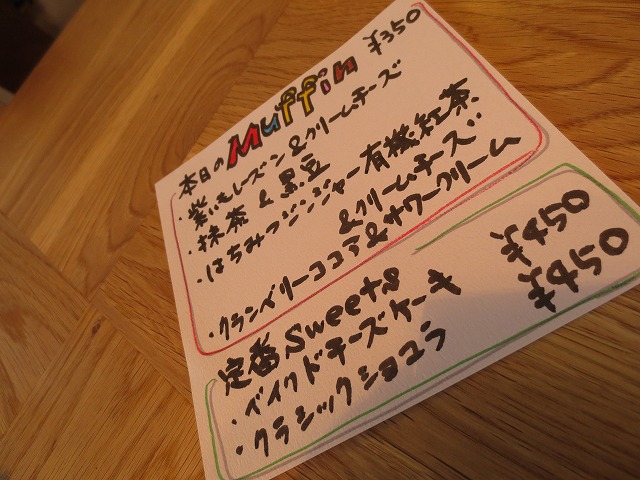 本日のMuffin ¥350
・紫いもレーズン&クリームチーズ
・抹茶&黒豆
・はちみつジンジャー有機紅茶
&クリームチーズ
・クランベリーココア&サワークリーム
定番Sweets
・ベイクドチーズケーキ ¥450
・クラシックショコラ ¥450